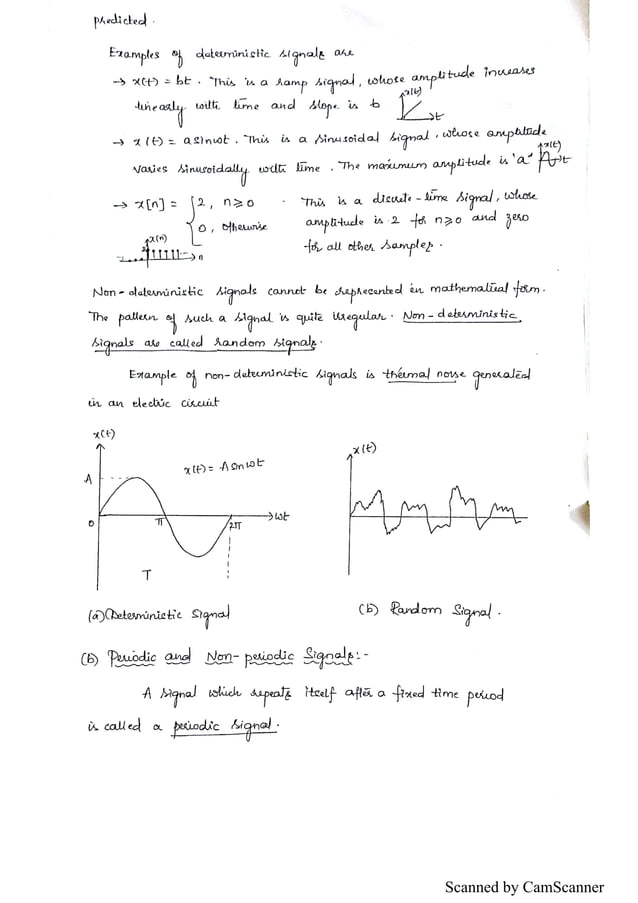 predicted.
Examples of deterministic signals are
→ x(t) = bt. This is a ramp signal, whose amplitude increases
linearly with time and slope is b
x(t)
t
→ x(t) = a sin ωt. This is a sinusoidal signal, whose amplitude
varies sinusoidally with time. The maximum amplitude is 'a'
x(t)
t
→ x[n] = { 2, n ≥ 0 . This is a discrete-time signal, whose
0, otherwise amplitude is 2 for n ≥ 0 and zero
for all other samples.
x(n)
2
n
Non-deterministic signals cannot be represented in mathematical form.
The pattern of such a signal is quite irregular. Non-deterministic
signals are called random signals.
Example of non-deterministic signals is thermal noise generated
in an electric circuit
x(t)
x(t) = A sin ωt
A
0
π
2π
ωt
T
x(t)
(a) Deterministic Signal
(b) Random Signal.
(b) Periodic and Non-periodic Signals:-
A signal which repeats itself after a fixed time period
is called a periodic signal.
Scanned by CamScanner